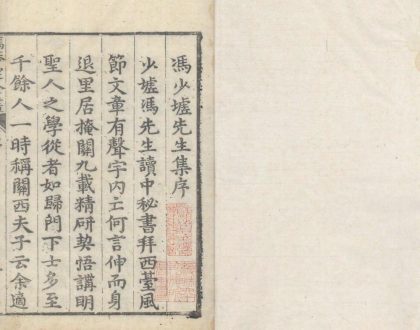 馮少墟先生集序
少墟馮先生讀中秘書拜西䑓風
節文章有聲宇内亡何言伸而身
退里居掩關九載精研契悟講明
聖人之學從者如歸門下士多至
千餘人一時稱關西夫子云余過